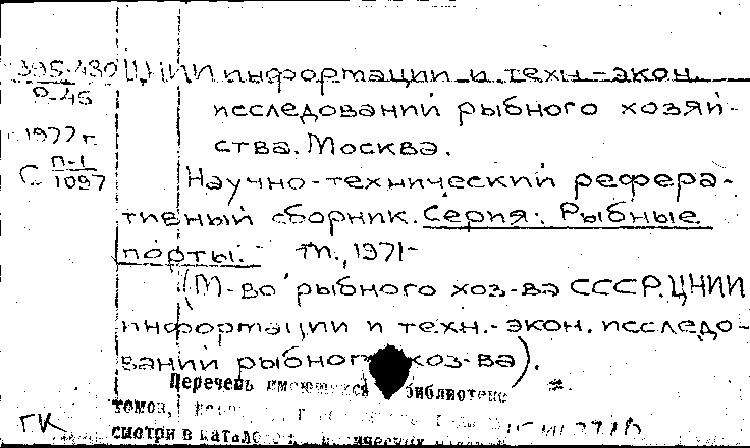 395-480 ЦНИИ информации и техн.-экон.
Р-45
исследований рыбного хозяй-
1977 г.
ства. Москва.
С П-1
1097
Научно-технический рефера-
тивный сборник. Серия: Рыбные
порты. М., 1971-
(М-во рыбного хоз-ва СССР. ЦНИИ
информации и техн.-экон. исследо-
ваний рыбного хоз-ва).
Перечень имеющихся библиотеке
томов,
смотри в
ГК